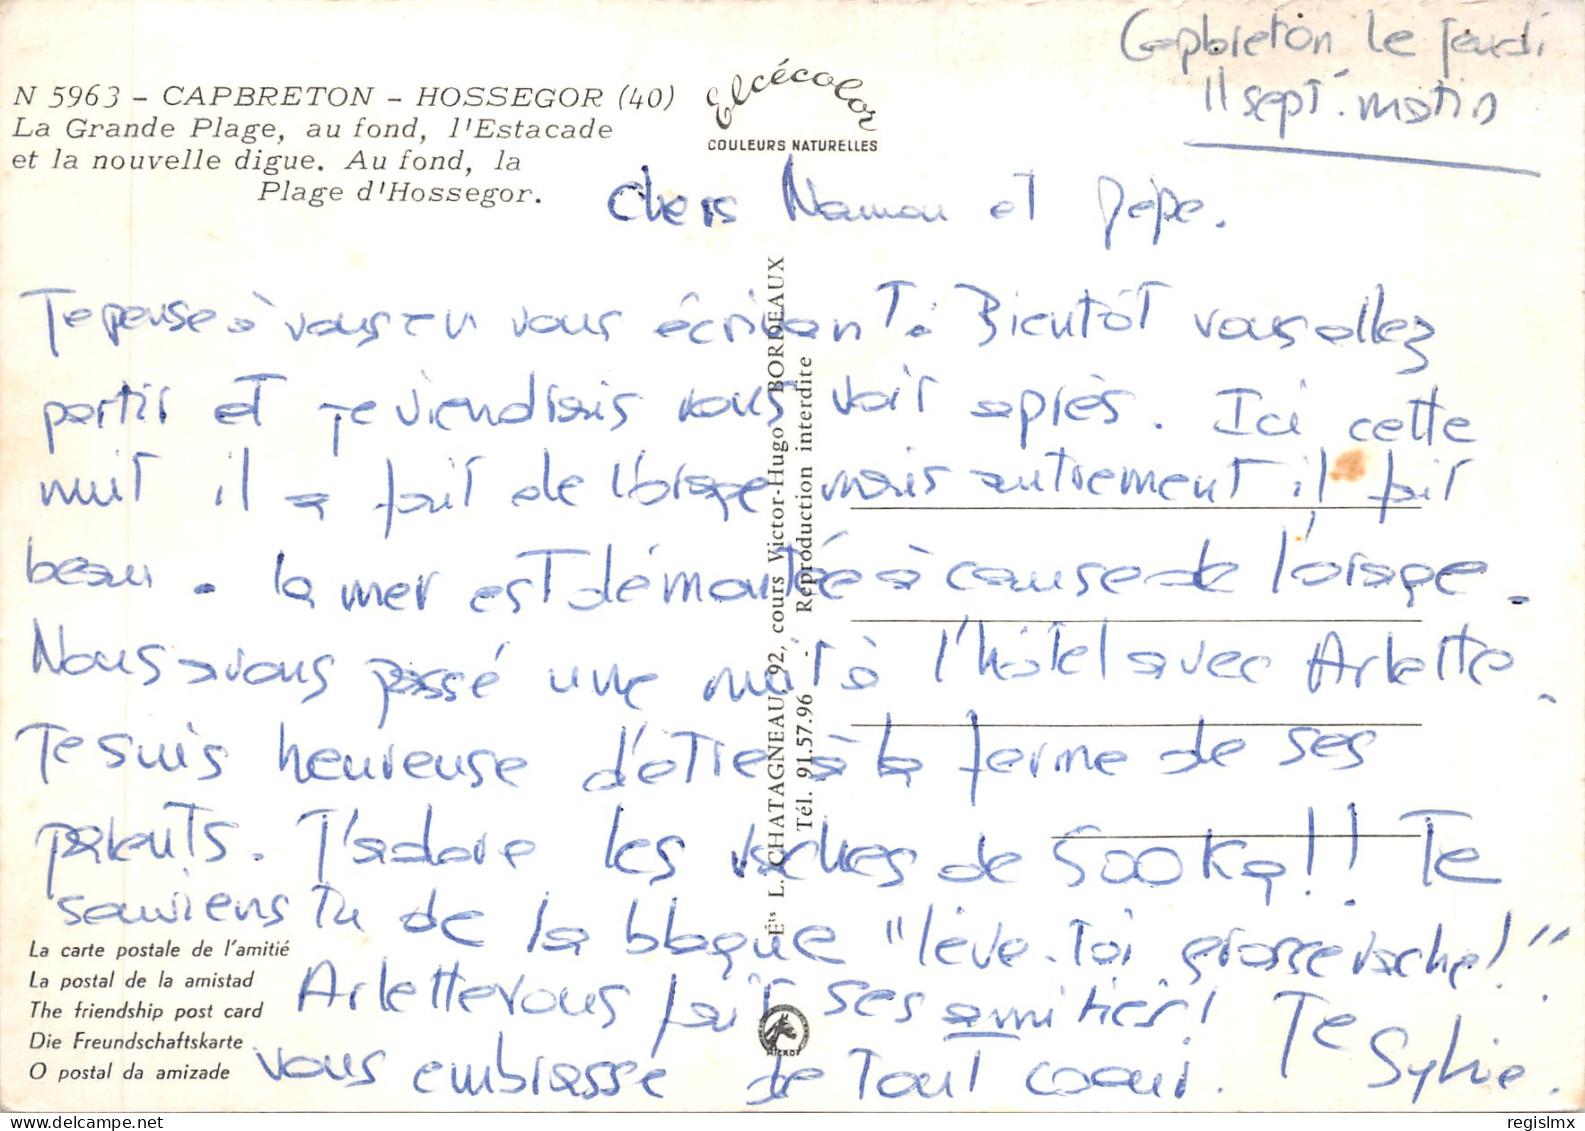 Capbreton le jeudi
11 sept. matin
N 5963 - CAPBRETON - HOSSEGOR (40)
La Grande Plage, au fond, l'Estacade
et la nouvelle digue. Au fond, la
Plage d'Hossegor.
Elcécolor
COULEURS NATURELLES
Chers Maman et Pépé.
Je pense à vous en vous écrivant. Bientôt vous allez
partir et je viendrais vous voir après. Ici cette
nuit il a fait de l'orage mais autrement il fait
beau. la mer est démontée à cause de l'orage.
Nous avons passé une nuit à l'hôtel avec Arlette.
Je suis heureuse d'être à la ferme de ses
parents. J'adore les vaches de 500 Kg!! Te
souviens tu de la blague "lève-toi grosse vache!"
Arlette vous fait ses amitiés! Je
vous embrasse de tout coeur. Sylvie.
Éts L. CHATAGNEAU, 92, cours Victor-Hugo - BORDEAUX
Tél. 91.57.96 - Reproduction interdite
La carte postale de l'amitié
La postal de la amistad
The friendship post card
Die Freundschaftskarte
O postal da amizade
MICROF
regislmx